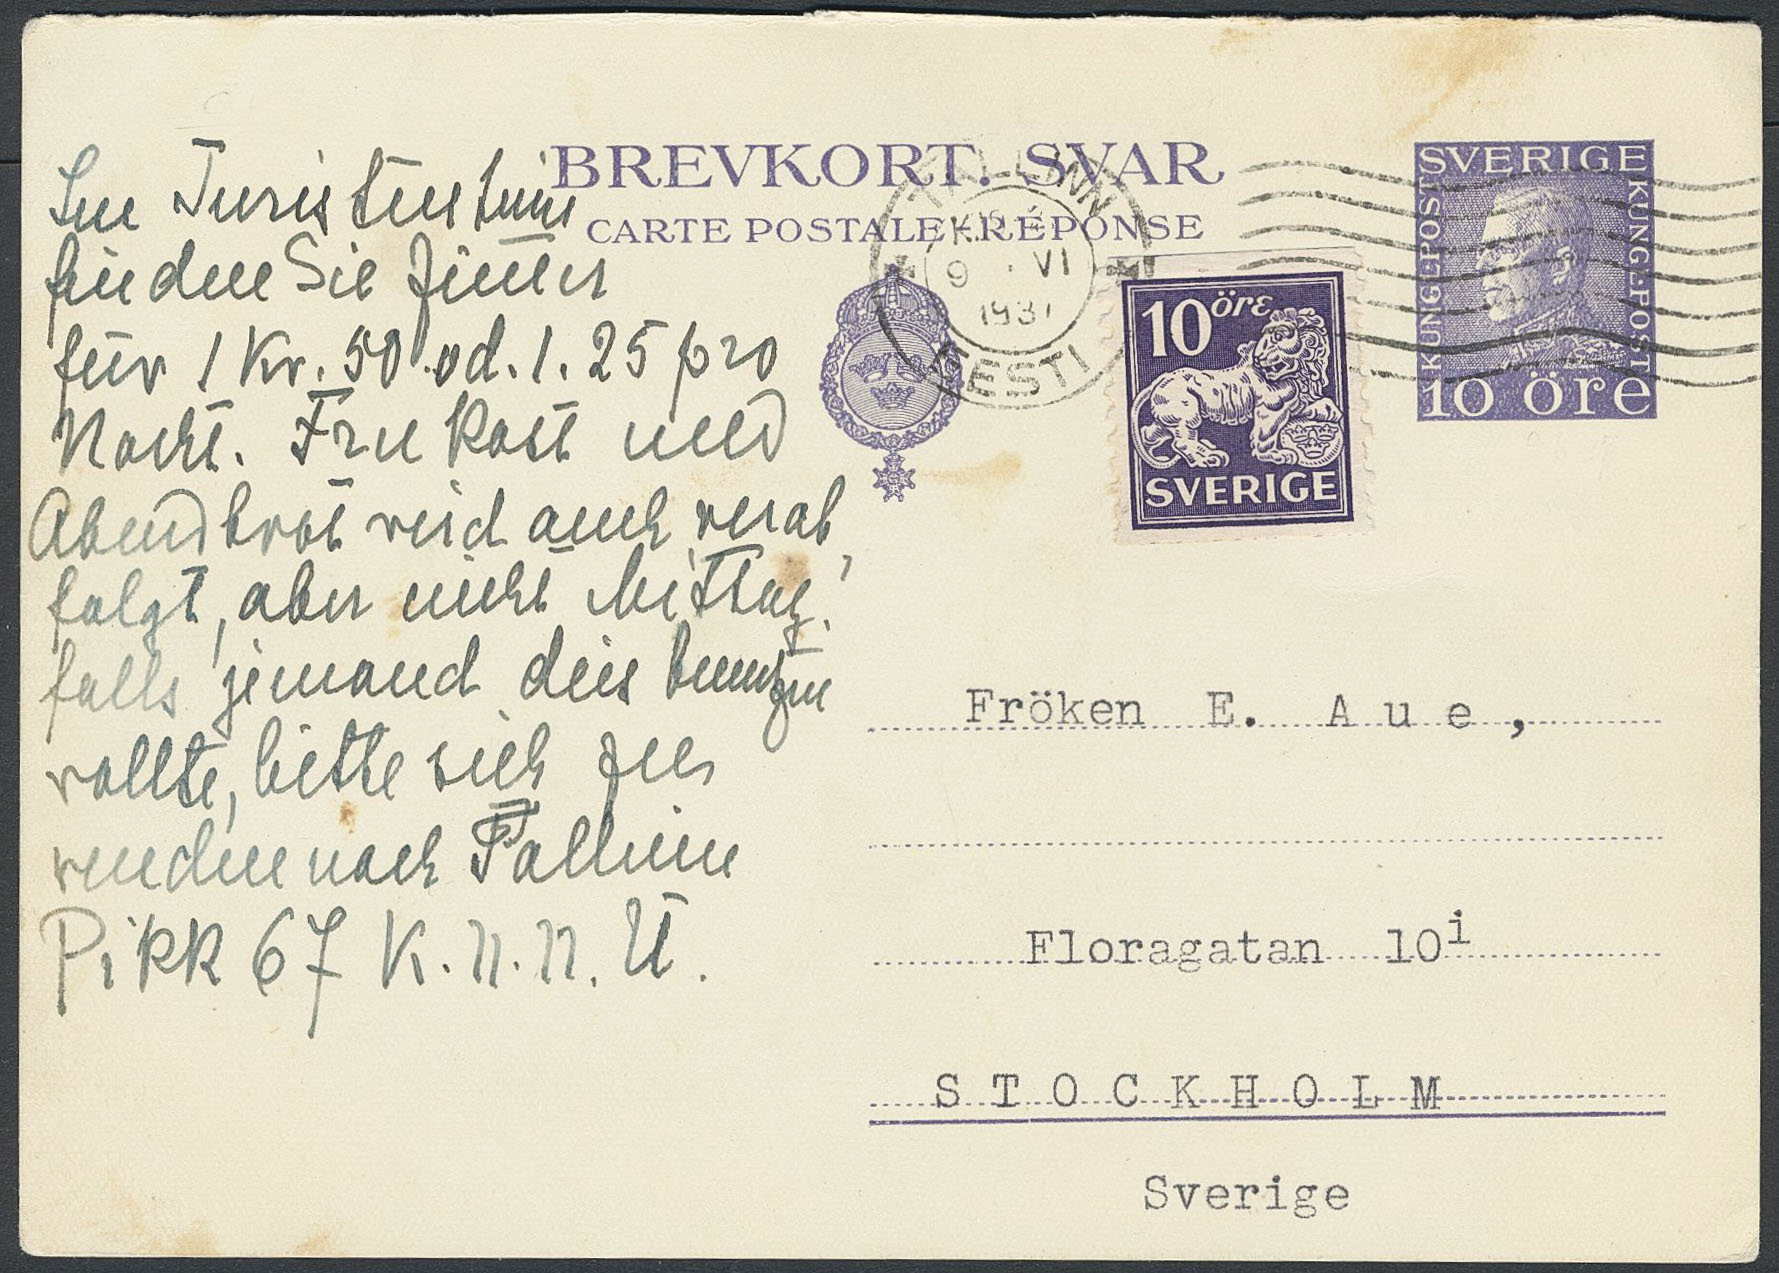 BREVKORT. SVAR
CARTE POSTALE-RÉPONSE
TALLINN
9 VI
1937
EESTI
SVERIGE
KUNGL·POST
KUNGL·POST
10 öre
10 öre
SVERIGE
Im Turistenheim
finden Sie Zimmer
für 1 Kr. 50 od. 1.25 pro
Nacht. Frukost und
Abendbrot wird auch verab
folgt, aber nicht Mittag.
falls jemand dies benutzen
wollte, bitte sich zu
wenden nach Tallinn
Pikk 67 K.N.N.Ü.
Fröken E. Aue,
Floragatan 10i
STOCKHOLM
Sverige